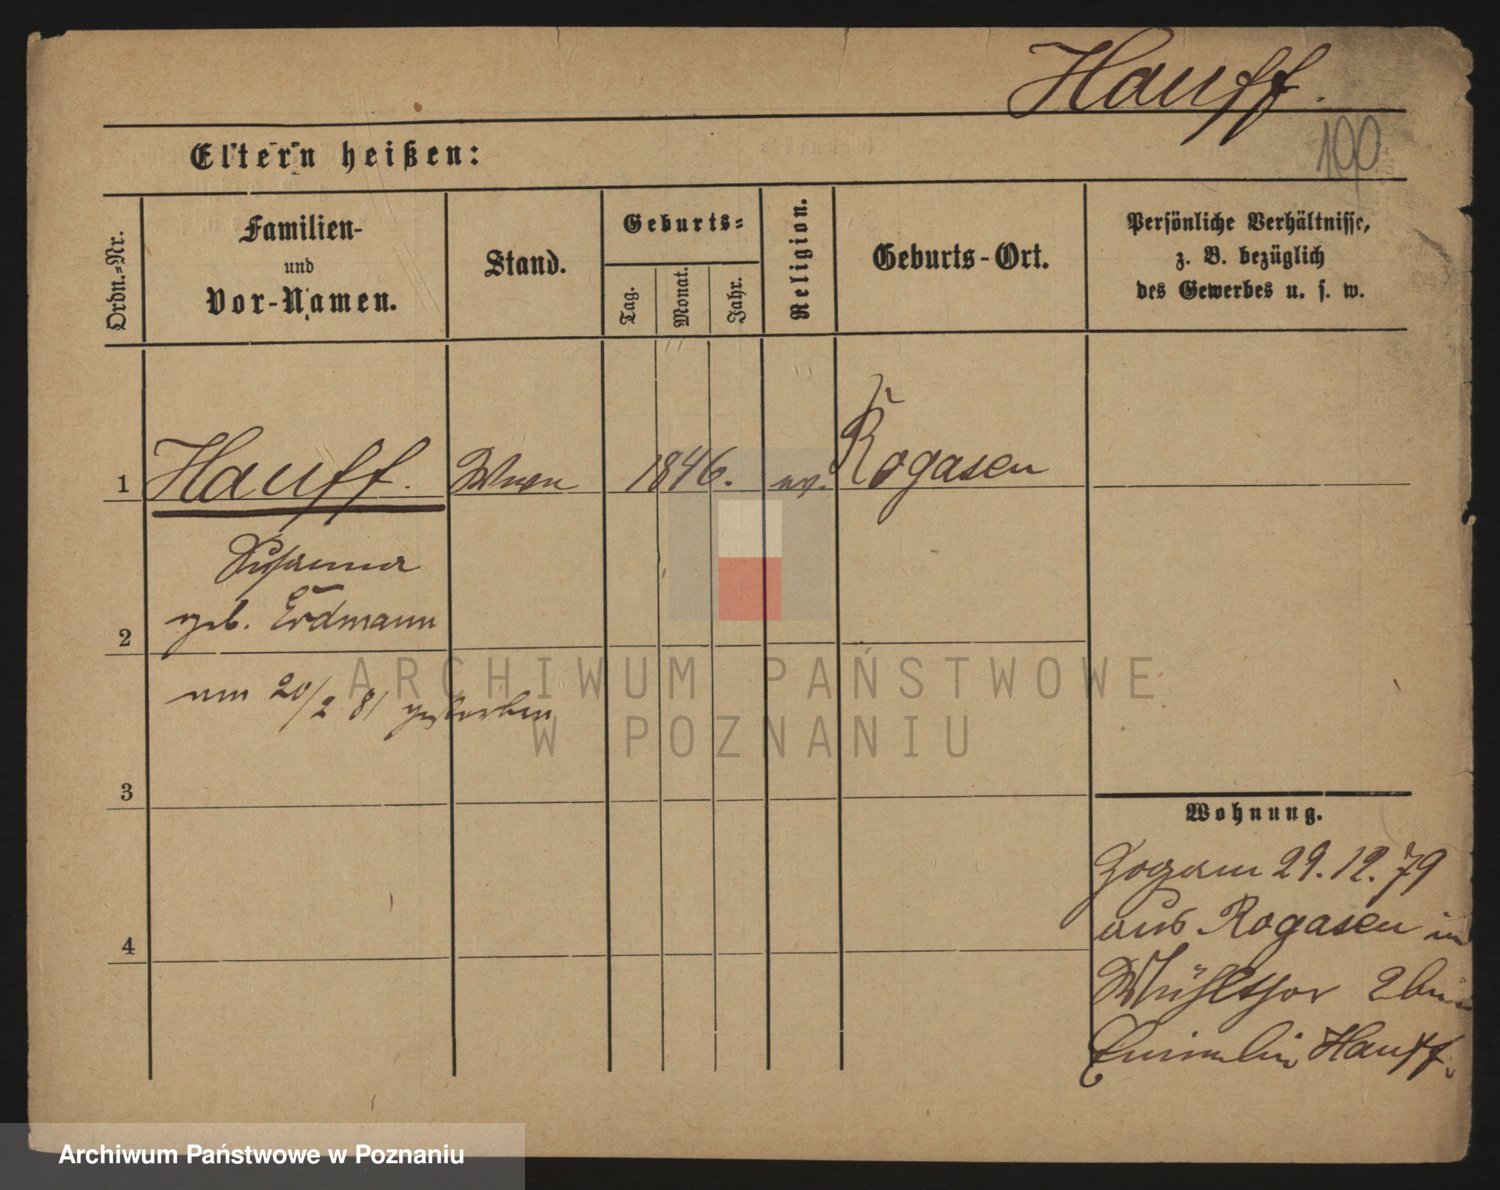 Hauff.
100
Eltern heißen:
Ordn.-Nr.
Familien-
und
Vor-Namen.
Stand.
Geburts-
Tag.
Monat.
Jahr.
Religion.
Geburts-Ort.
Persönliche Verhältnisse,
z. B. bezüglich
des Gewerbes u. s. w.
1 Hauff. Wwe 1846. ev. Rogasen
Susanna
2 geb. Erdmann
am 20/2 81 gestorben
3
4
Wohnung.
Zog am 29.12.79
aus Rogasen in
Mühlthor 2 bei
Hauff.
ARCHIWUM PAŃSTWOWE
W POZNANIU
Archiwum Państwowe w Poznaniu